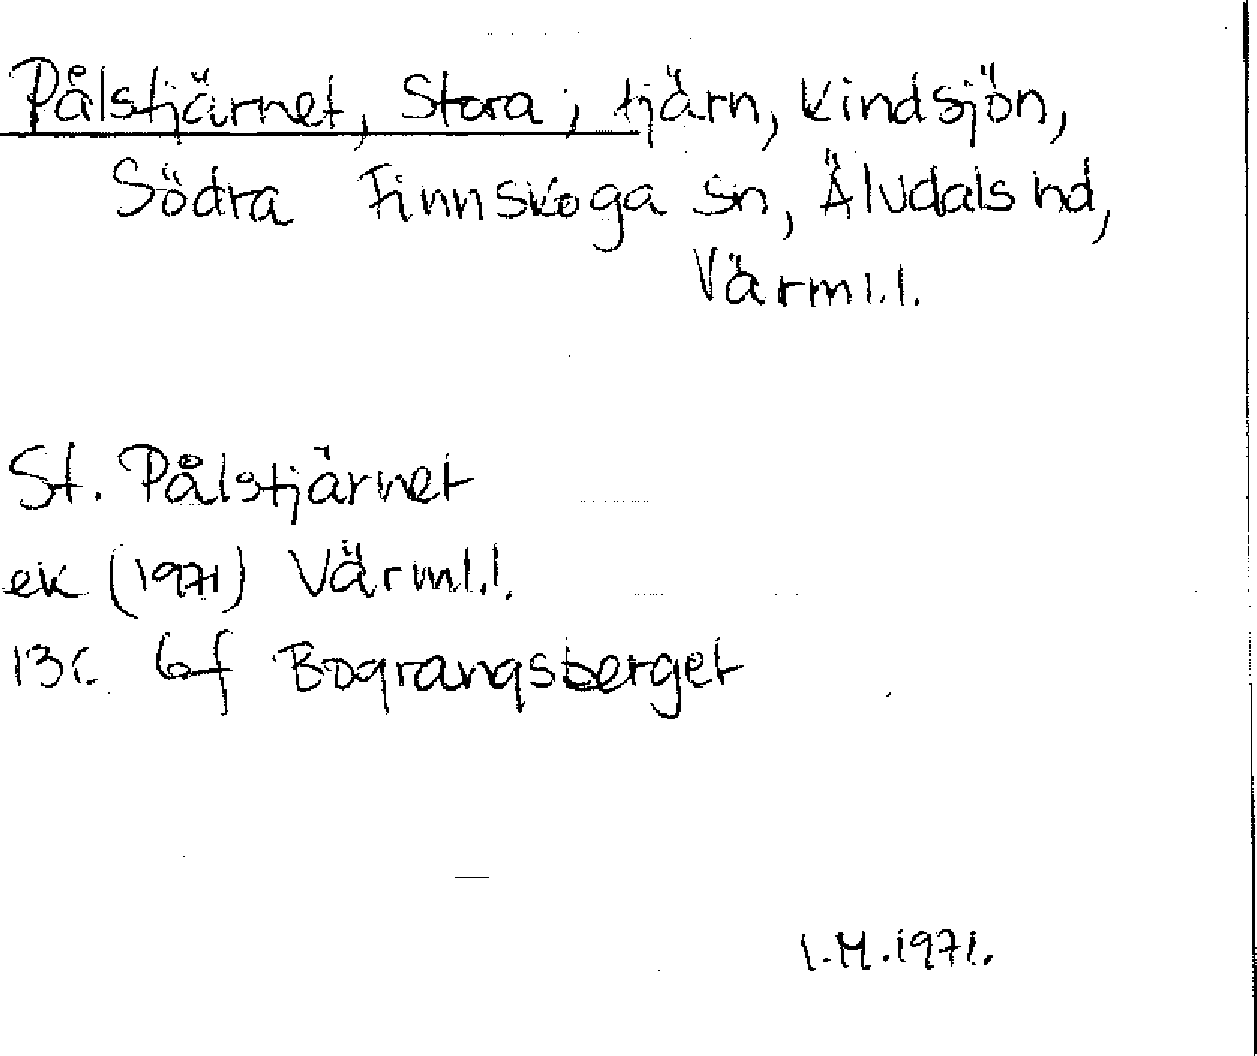 Pålstjärnet, Stora; tjärn, Kindsjön,
Södra Finnskoga sn, Älvdals hd,
Värml.l.
St. Pålstjärnet
ek (1971) Värml.l.
13c 6f Bograngsberget
I.M.1971.